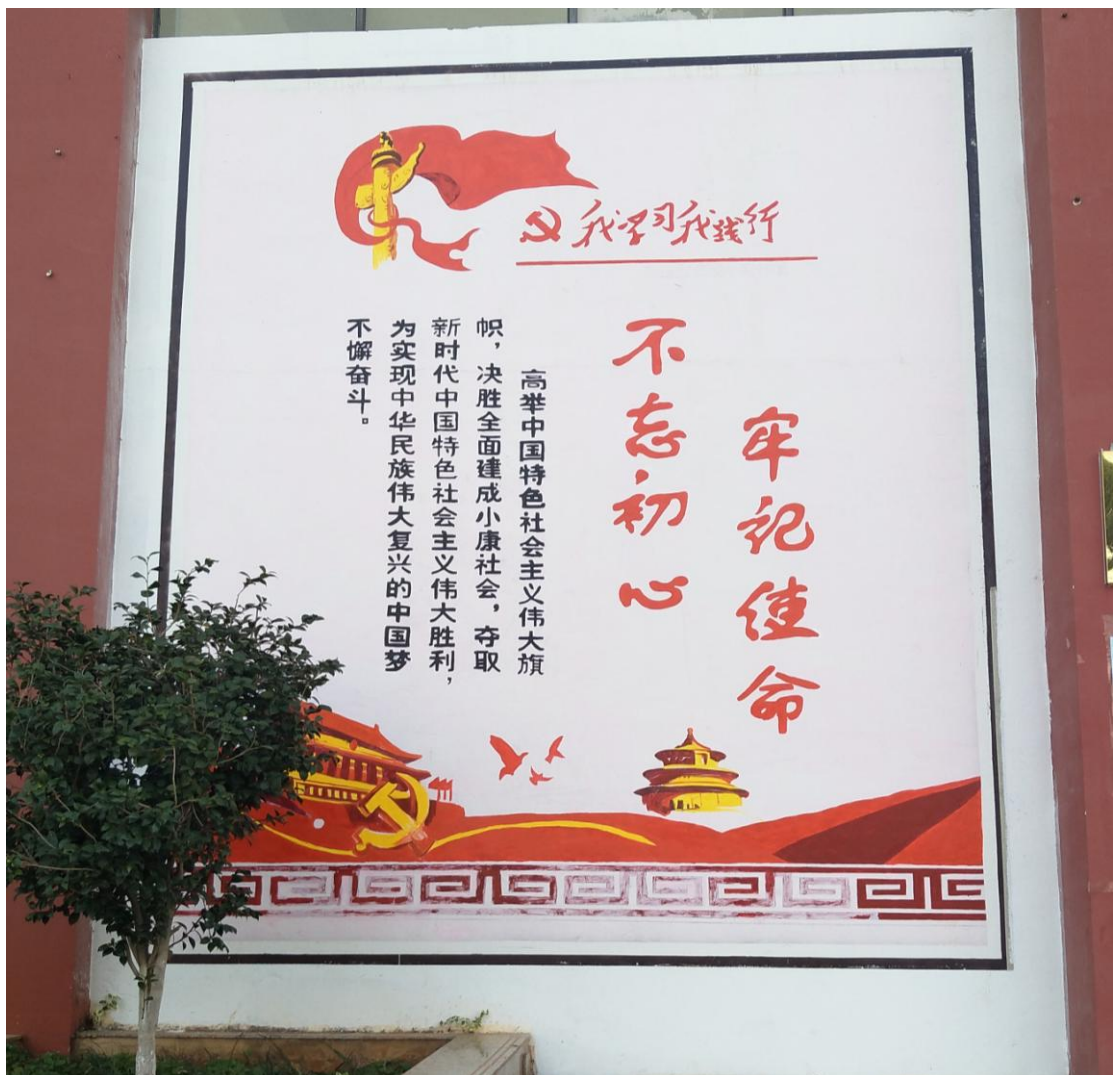 我学习我践行
不忘初心
牢记使命
高举中国特色社会主义伟大旗
帜，决胜全面建成小康社会，夺取
新时代中国特色社会主义伟大胜利，
为实现中华民族伟大复兴的中国梦
不懈奋斗。